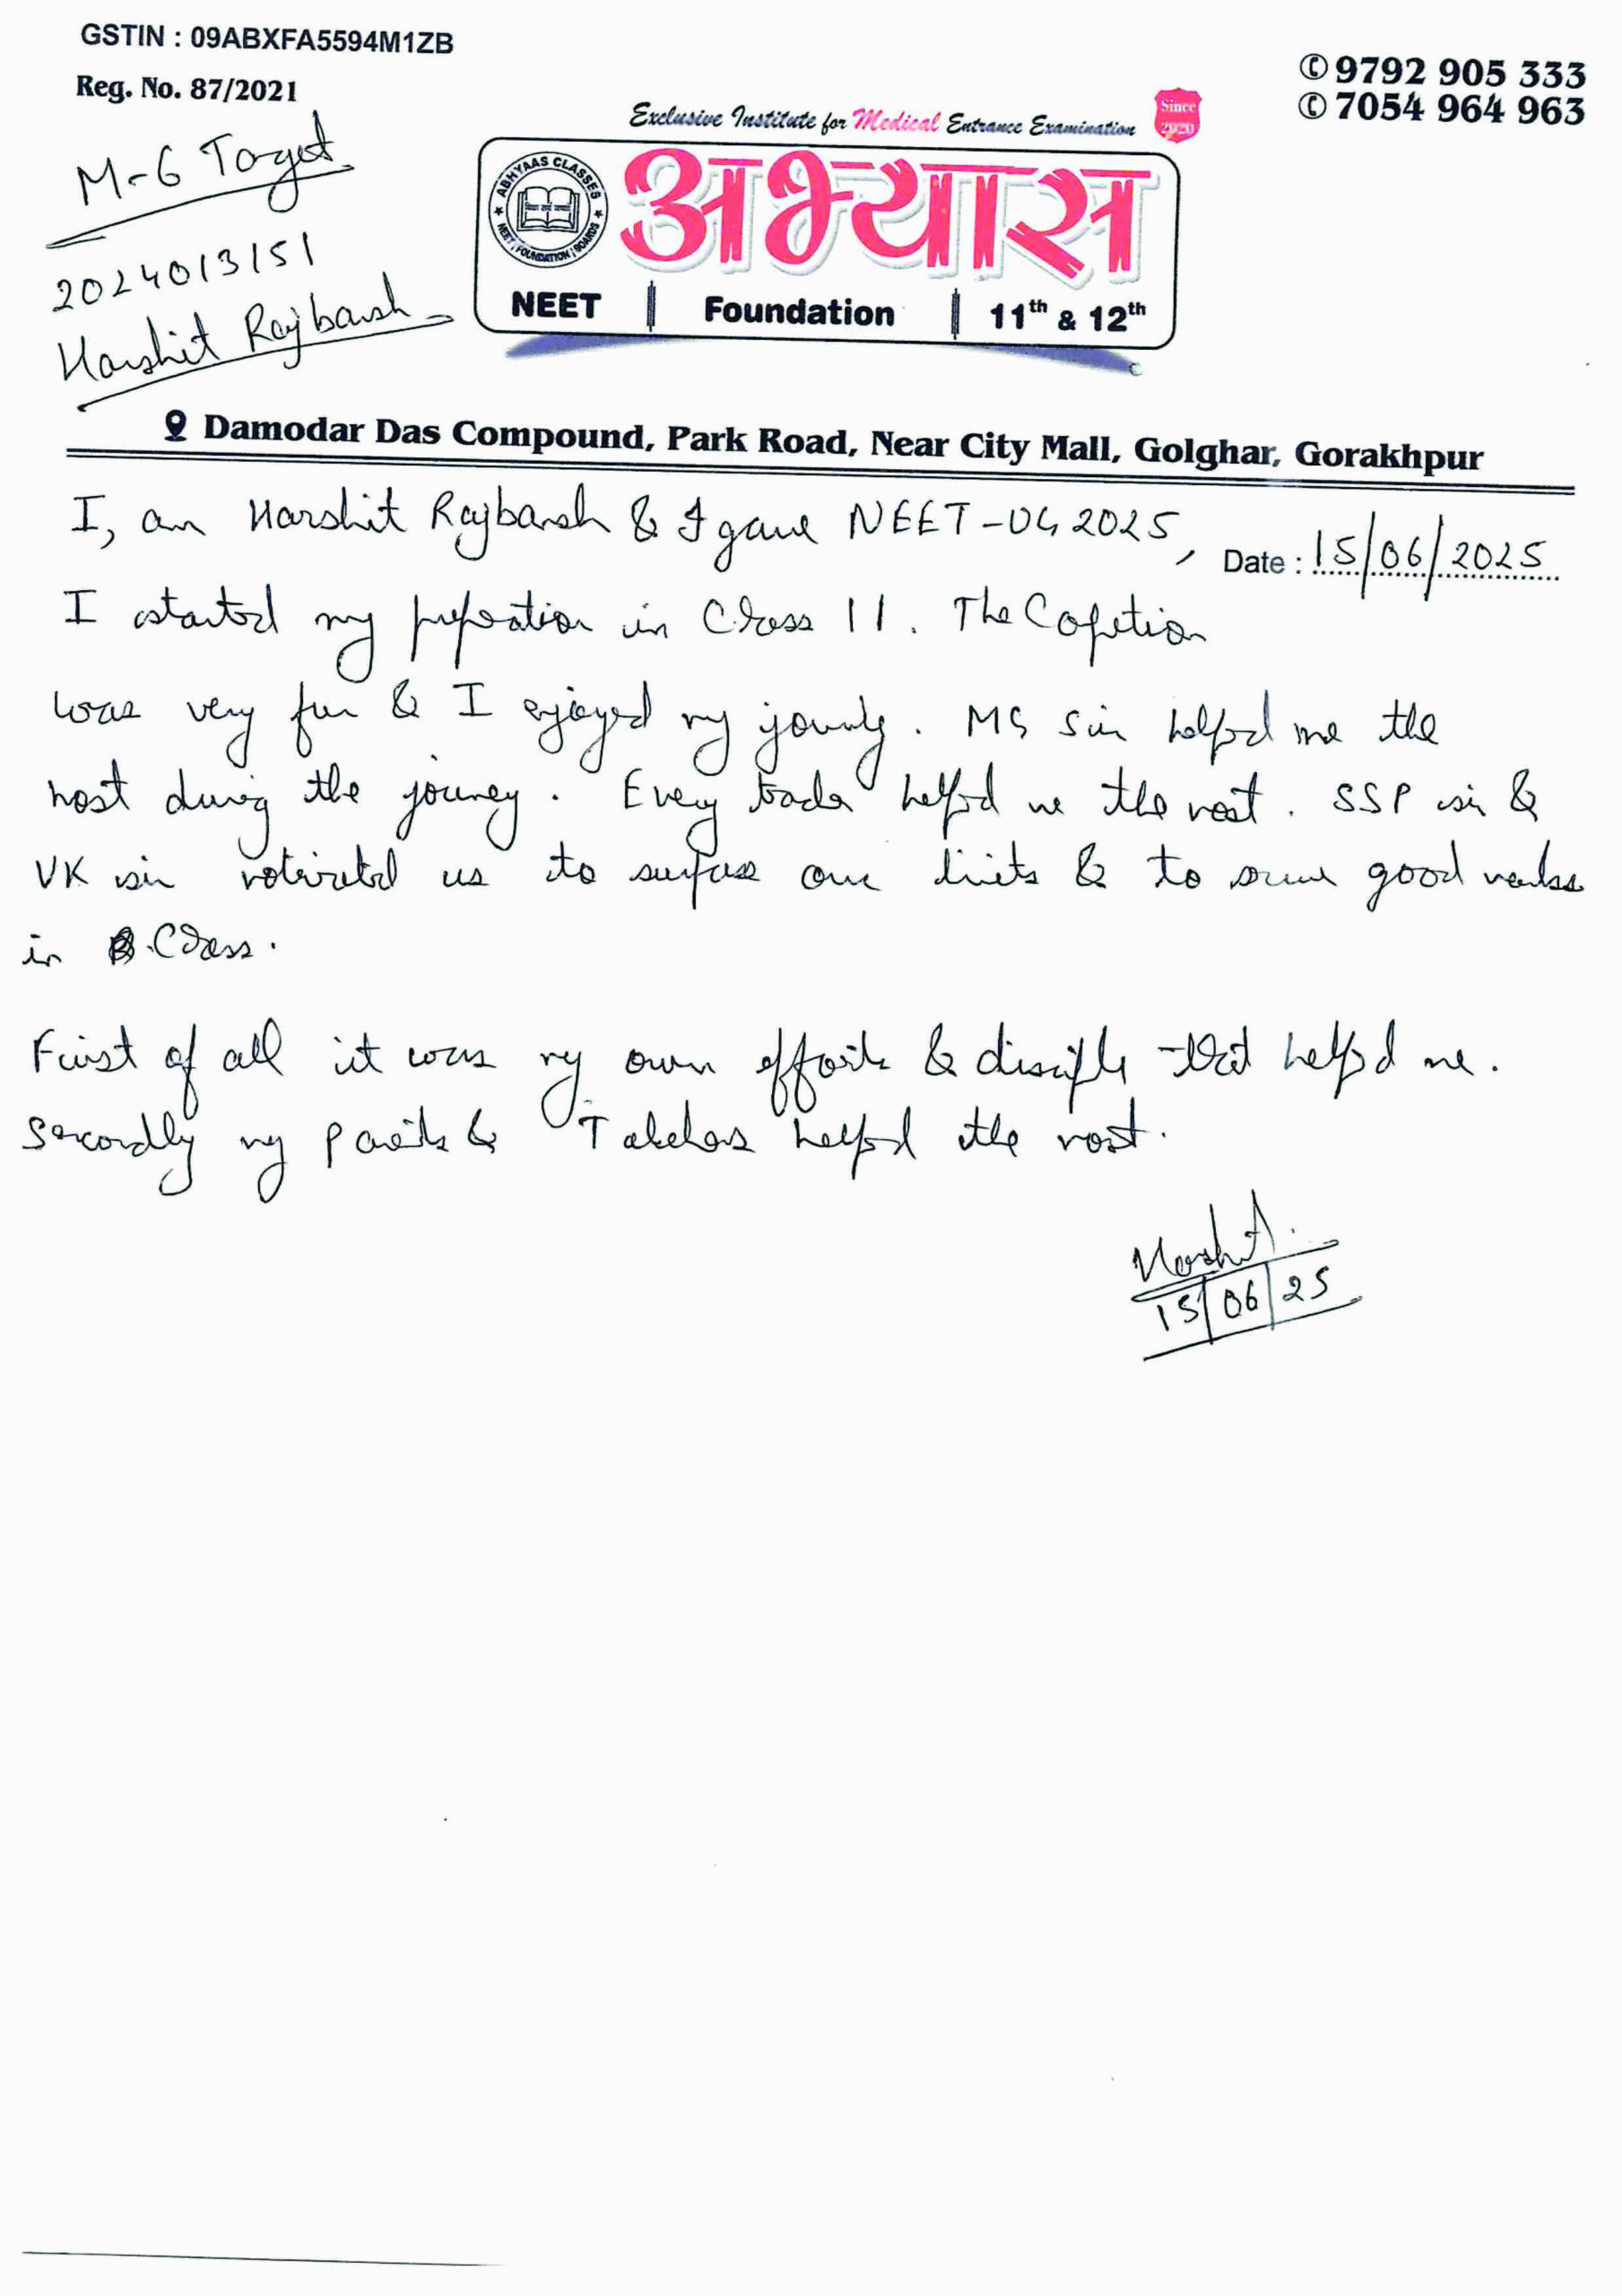 GSTIN : 09ABXFA5594M1ZB
Reg. No. 87/2021
✆ 9792 905 333
✆ 7054 964 963
M-6 Target
2024013151
Harshit Rajbansh
Exclusive Institute for Medical Entrance Examination
Since 2020
ABHYAAS CLASSES
NEET | FOUNDATION | BOARDS
अभ्यास
NEET | Foundation | 11th & 12th
Damodar Das Compound, Park Road, Near City Mall, Golghar, Gorakhpur
Date : 15/06/2025
I, am Harshit Rajbansh & I gave NEET-UG 2025,
I started my in Class 11. The
was very fun & I enjoyed my journey. MS sir helped me the
most during the journey. Every helped me the most. SSP sir &
VK sir motivated us to surpass our limits & to good marks
in Class.
First of all it was my own efforts & that helped me.
Secondly my Parents & helped the most.
Harshit.
15/06/25